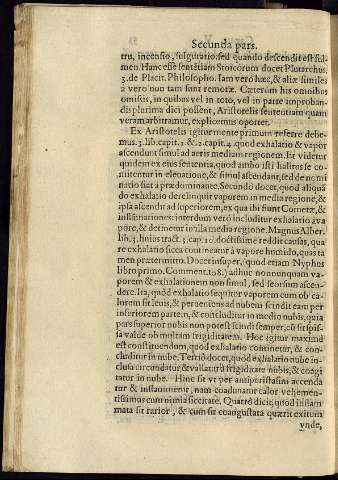 Secunda pars.
tru, incensio, fulguratio, sed quando descendit est ful-
men. Hanc esse sententiam Stoicorum docet Plutarchus.
3. de Placit. Philosopho. Iam verò hæc, & aliæ similes
à vero non tam sunt remotæ. Cæterùm his omnibus
omissis, in quibus vel in toto, vel in parte improban-
dis plurima dici possent, Aristotelis sententiam quam
veram arbitramur, explicemus oportet.
Ex Aristotelis igitur mente primum referre debe-
mus. 3. lib. capit. 1. & .2. capit. 4. quòd exhalatio & vapor
ascendunt simul ad aëris mediam regionem. Et videtur
quidem ex eius sententia, quòd ambo isti halitus se co-
mitentur in eleuatione, & simul ascendant, sed denomi
natio fiat à prædominante. Secundò docet, quòd aliquã
do exhalatio derelinquit vaporem in media regione, &
ipsa ascendit ad superiorem, ex qua ibi fiunt Cometæ, &
inflammationes: interdum verò includitur exhalatio à va
pore, & detinetur in illa media regione. Magnus Alber.
lib. 3. huius tract. 3. cap. 10. doctissimè reddit causas, qua
re exhalatio sicca contineatur à vapore humido, quas ta
men prætermitto. Docet insuper, (quod etiam Nyphus
libro primo. Comment. 108.) adhuc nonnunquam va-
porem & exhalationem non simul, sed seorsum ascen-
dere. Ita, quòd exhalatio sequitur vaporem cum ob ca-
lorem sit leuis, & perueniens ad nubem scindit eam per
inferiorem partem, & concluditur in medio nubis, quia
pars superior nubis non potest scindi semper, cũ sit spis-
sa valde ob multam frigiditatem. Hoc igitur maximè
est constituendum, quòd exhalatio continetur, & con-
cluditur in nube. Tertiò docet, quòd exhalatio nube in-
clusa circundatur & vallatur à frigiditate nubis, & coagi
tatur in nube. Hinc fit vt per antiperistasim accenda
tur & inflammetur, nam coadunatur calor vehemen-
tissimus cum nimia siccitate. Quartò dicit, quòd inflam
mata fit rarior, & cum sit coangustata quærit exitum
vnde,